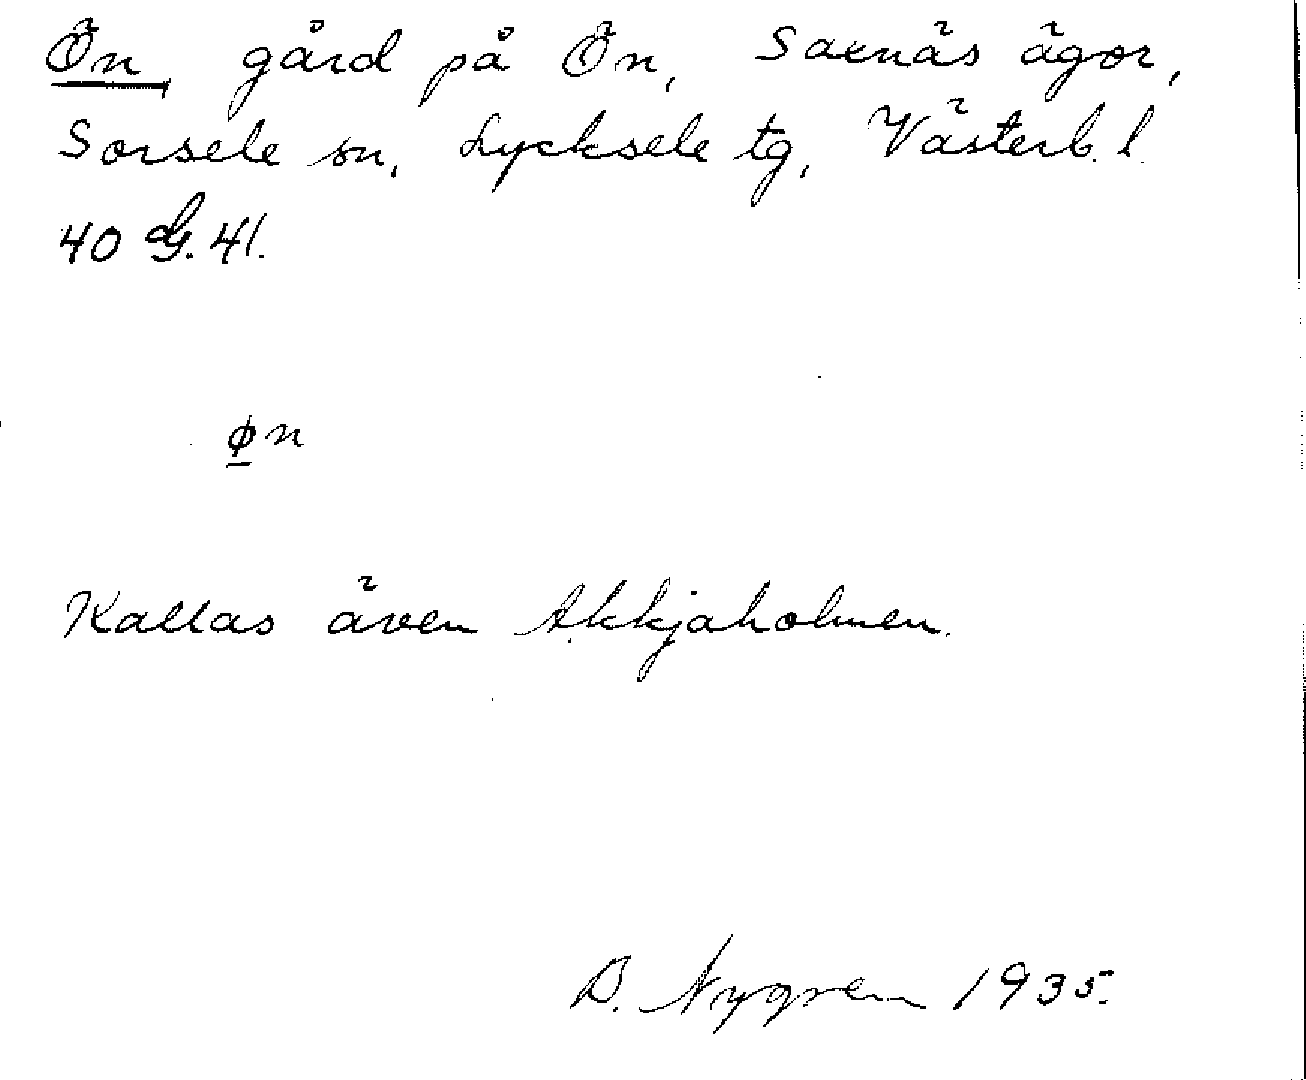 Ön, gård på Ön, Saxnäs ägor,
Sorsele sn, Lycksele tg, Västerb. l.
40 G. 41.
øn
Kallas även Akkjaholmen.
B. Nygren 1935.